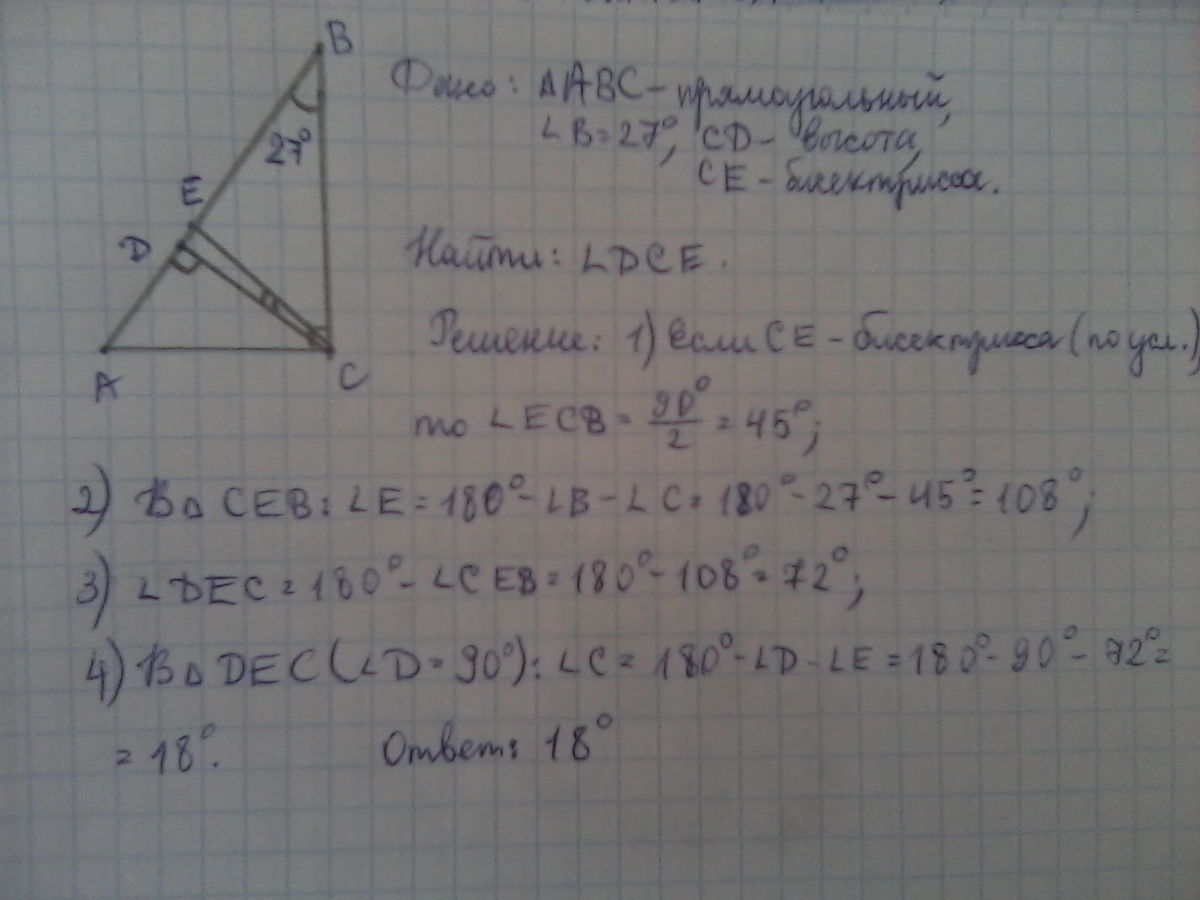 B
Дано: ΔABC - прямоугольный,
27°
∠B = 27°, CD - высота,
CE - биссектрисса.
E
D
Найти: ∠DCE.
Решение: 1) Если CE - биссектрисса (по усл.)
A
C
то ∠ECB = 90°/2 = 45°;
2) В Δ CEB: ∠E = 180° - ∠B - ∠C = 180° - 27° - 45° = 108°;
3) ∠DEC = 180° - ∠CEB = 180° - 108° = 72°;
4) В Δ DEC (∠D = 90°): ∠C = 180° - ∠D - ∠E = 180° - 90° - 72° =
= 18°. Ответ: 18°